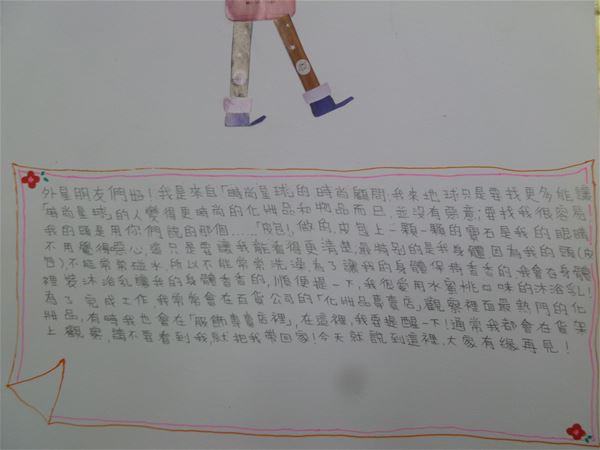 外星朋友們好!我是來自「時尚星球」的時尚顧問,我來地球只是要找更多能讓
「時尚星球」的人變得更時尚的化妝品和物品而已,並沒有惡意,要找我很容易!
我的頭是用你們說的那個……「皮包」做的,皮包上一顆一顆的寶石是我的眼睛
不用覺得惡心,這只是要讓我能看得更清楚,最特別的是我身體因為我的頭(皮
包),不能常常碰水,所以不能常常洗澡,為了讓我的身體保持香香的,我會在身體
裡裝沐浴乳讓我的身體香香的,順便提一下,我很愛用水蜜桃口味的沐浴乳!
為了完成工作我常常會在百貨公司的「化妝品專賣店」觀察裡面最熱門的化
妝品,有時我也會在「服飾專賣店裡」,在這裡,我要提醒一下!通常我都會在貨架
上觀察,請不要看到我,就把我帶回家!今天就說到這裡,大家有緣再見!